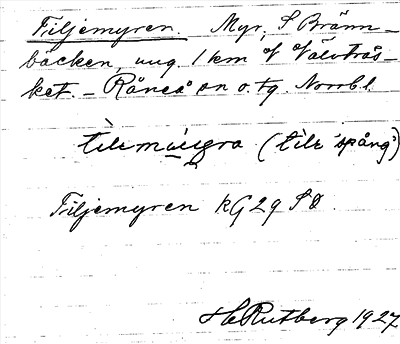 Tiljemyren. Myr, S Bränn-
bäcken, ung. 1 km V Valvträs-
ket. – Råneå sn o. tg. Norrb. l.
(tile 'spång')
Tiljemyren kG 29 SO.
H Rutberg 1927